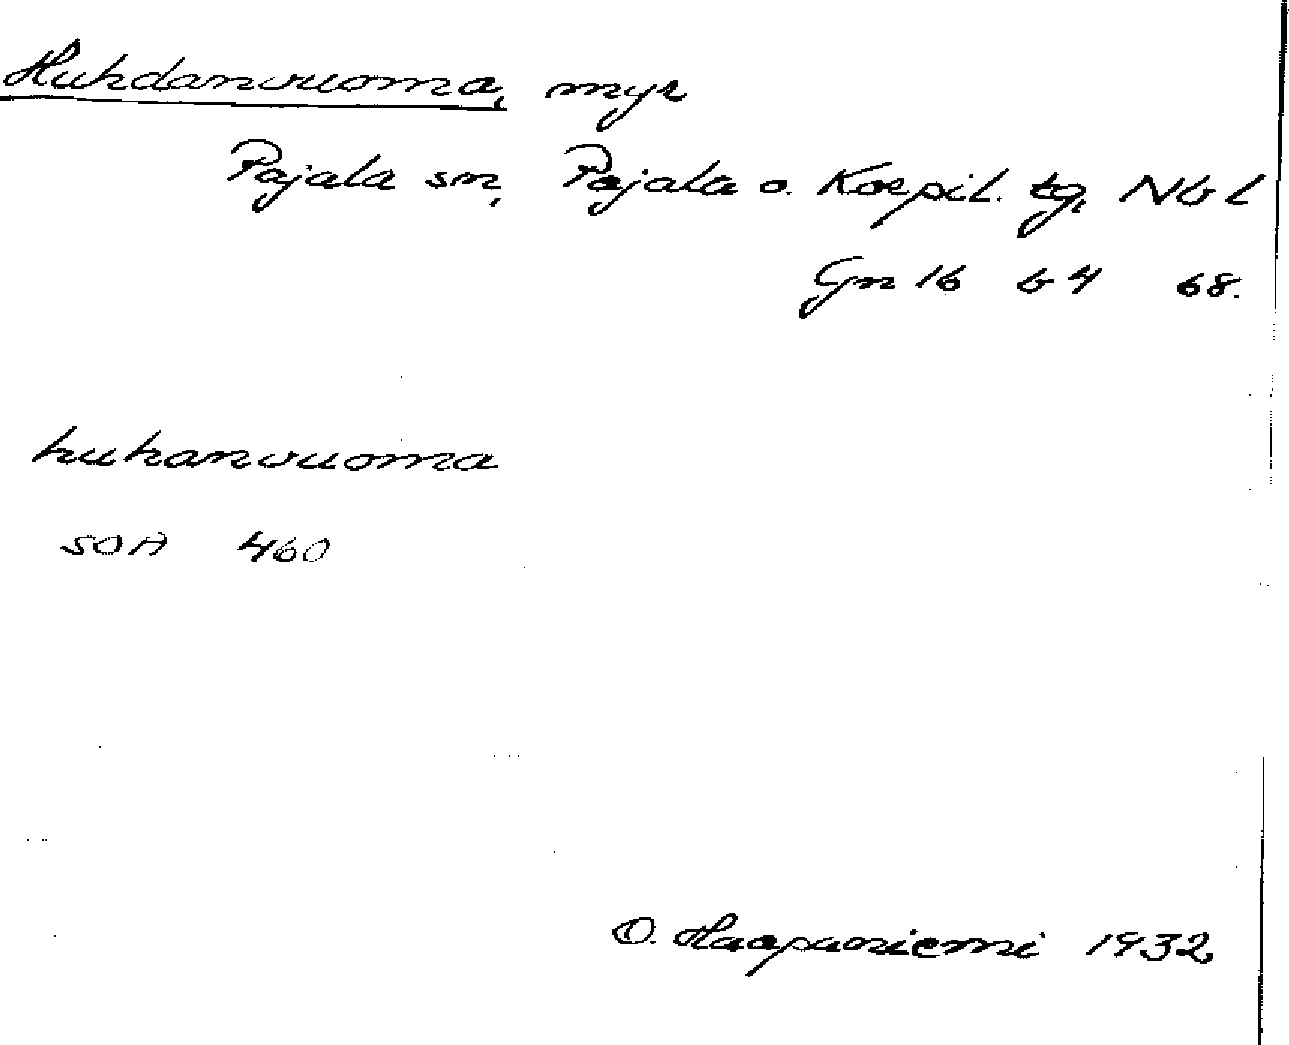 Huhdanvuoma, myr
Pajala sn, Pajala o. Korpil. tg, Nb l
Gn 16 b 4 68.
huhanvuoma
SOA 460
O. Haapaniemi 1932